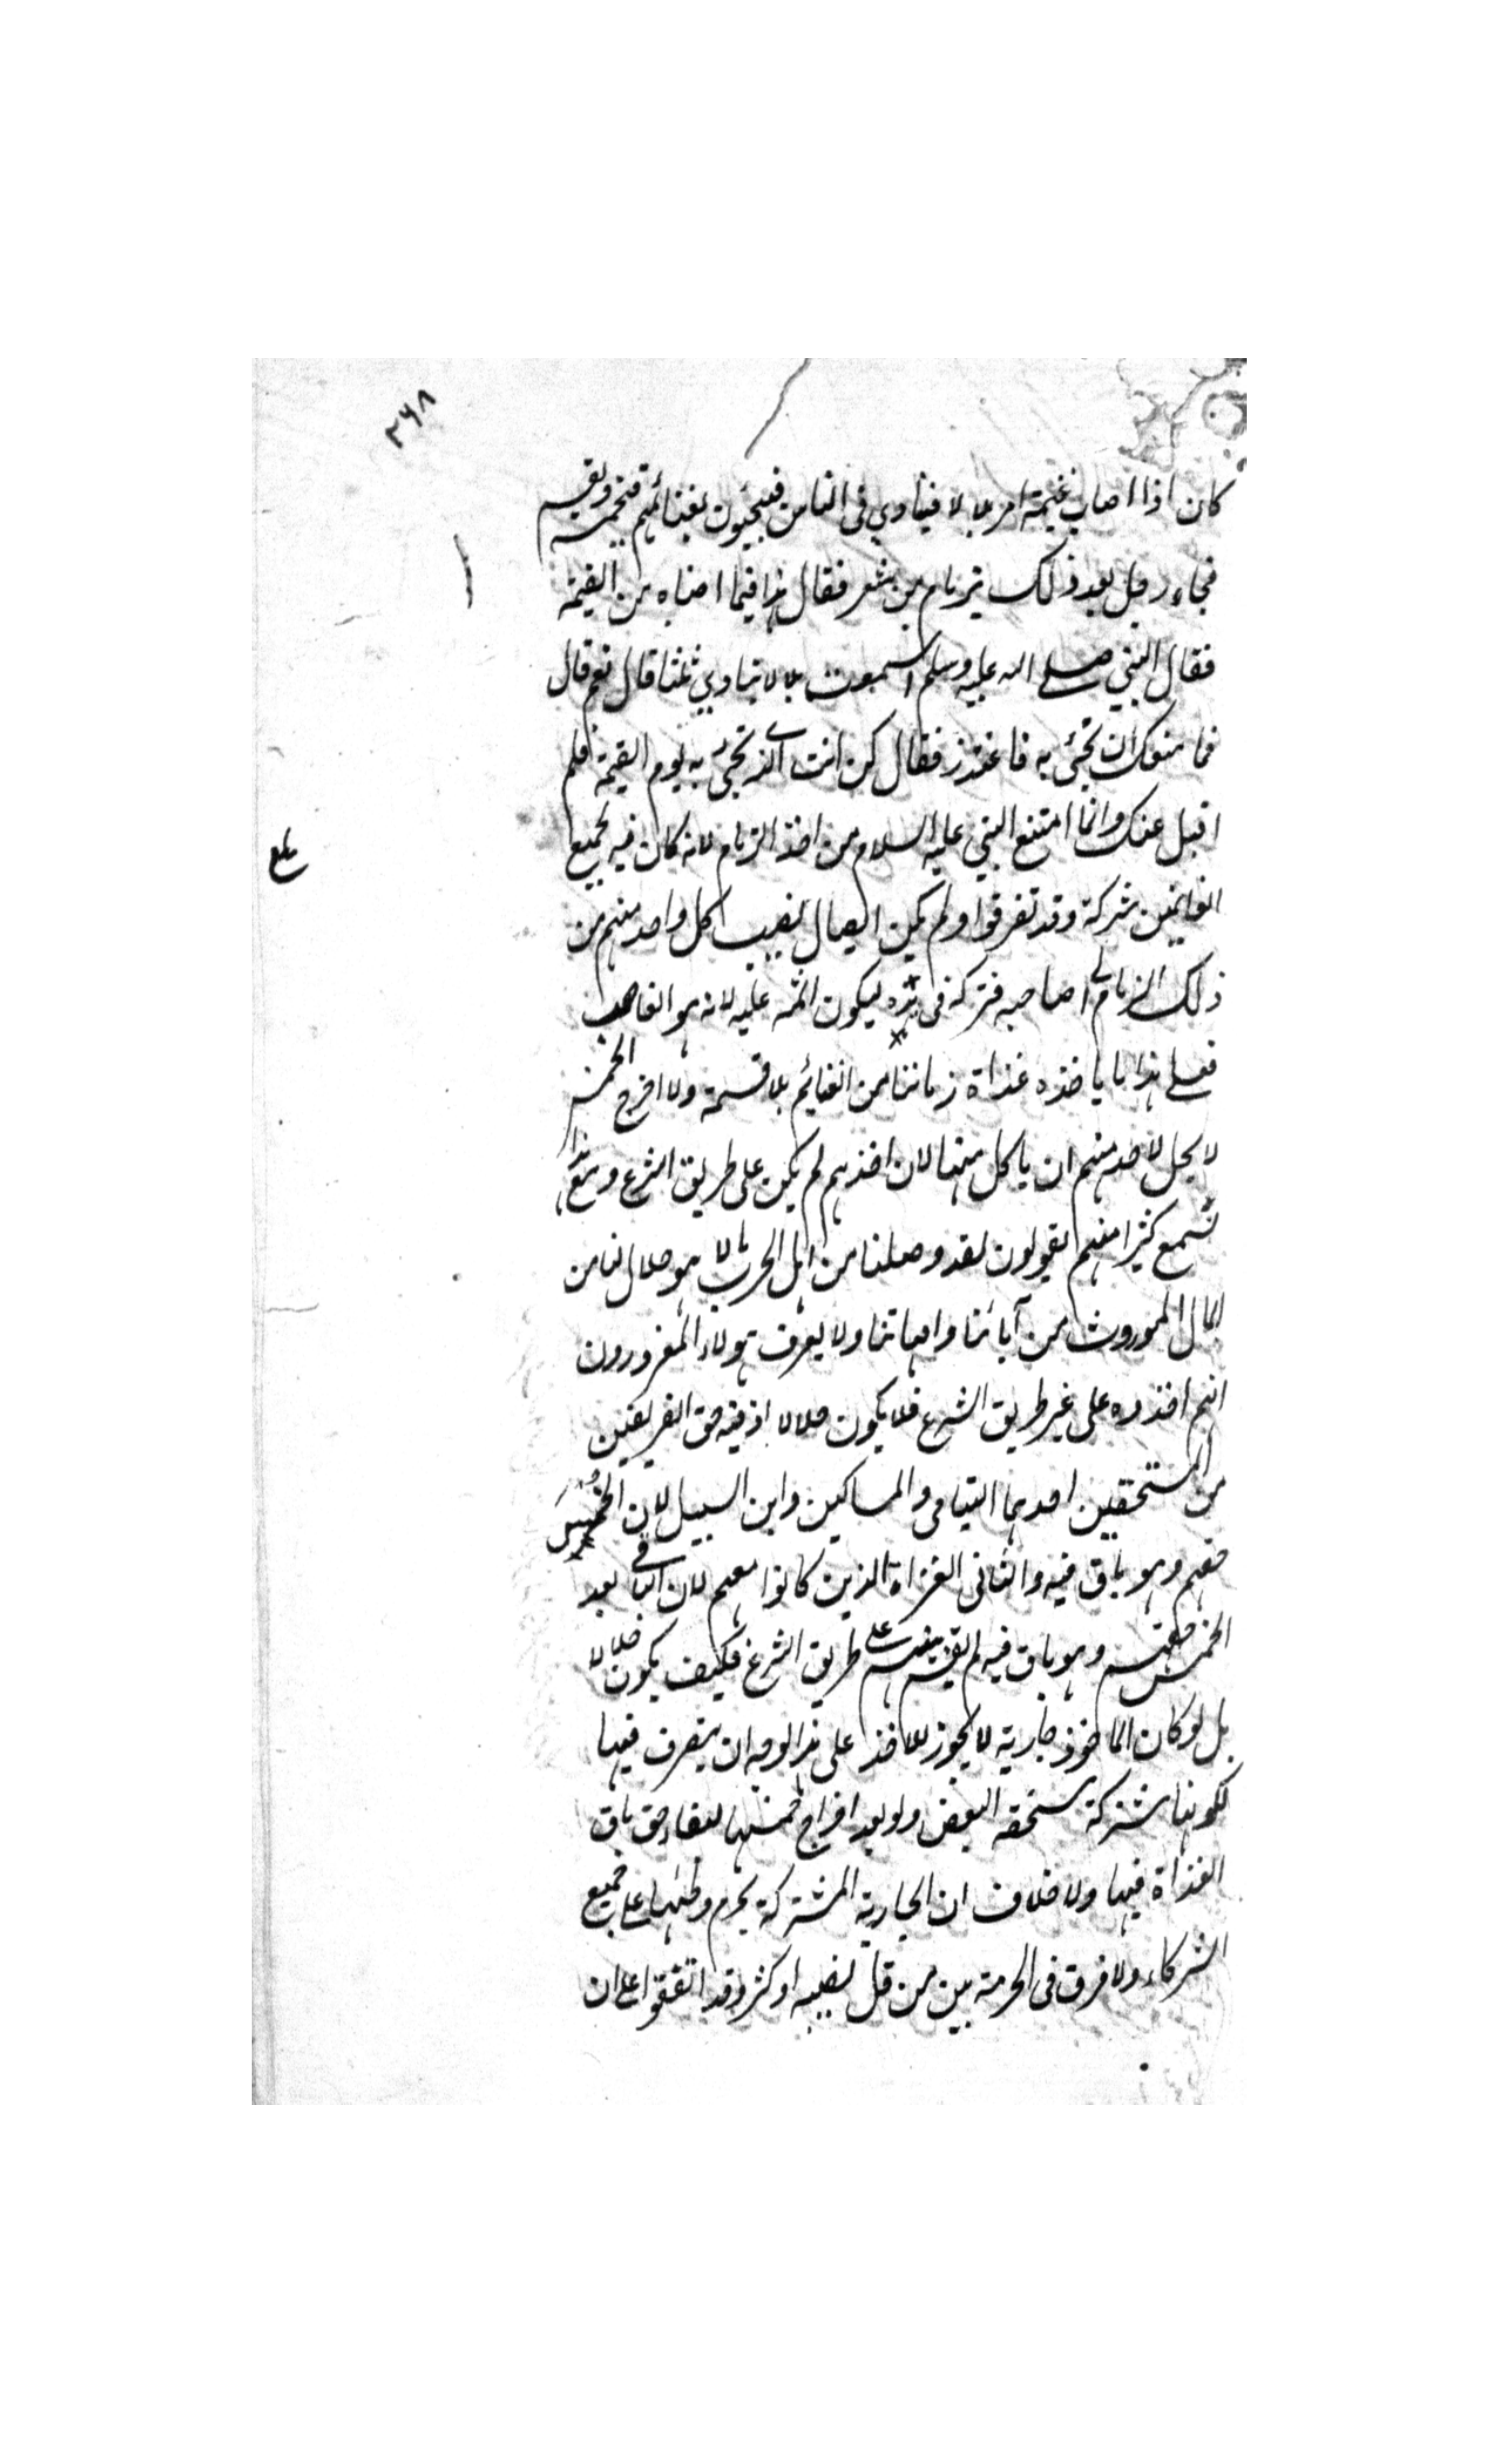 ٣٦٨
كان اذا اصاب غنيمة امر بلالا فينادي فى الناس فيجيئون بغنائمهم فيخمسه ويقسمه
فجاء رجل بعد ذلك بزمام من شعر فقال هذا فيما اصبناه من الغنيمة
فقال النبي صلى الله عليه وسلم اسمعت بلالا ينادي ثلثا قال نعم قال
فما منعك ان تجئ به فاعتذر فقال كن انت الذى تجئ به يوم القيمة فلم
اقبل عنك وانما امتنع النبي عليه السلام من اخذ الزمام لانه كان فيه لجميع
الغانمين شركة وقد تفرقوا ولم يمكن ايصال نصيب كل واحد منهم من
ذلك الزمام الى صاحبه فتركه فى يده ليكون اثمه عليه لانه هو الغاصب
فعلى هذا ما ياخذه غزاة زماننا من الغنائم بلا قسمة ولا اخراج الخمس
لا يحل لاحد منهم ان ياكل منها لان اخذهم لم يكن على طريق الشرع ومع هذا
نسمع كثيرا منهم يقولون لقد وصلنا من اهل الحرب مالا هو حلال لنا من
المال الموروث من آبائنا وامهاتنا ولا يعرف هؤلاء المغرورون
انهم اخذوه على غير طريق الشرع فلا يكون حلالا اذ فيه حق الفريقين
من المستحقين احدهما اليتامى والمساكين وابن السبيل لان الخمس
حقهم وهو باق فيه والثانى الغزاة الذين كانوا معهم لان الباقى بعد
الخمس حقهم وهو باق فيه لم يقسم بينهم على طريق الشرع فكيف يكون حلالا
بل لو كان الماخوذ جارية لا يجوز للآخذ على هذا الوجه ان يتصرف فيها
لكونها مشتركة مستحقه البعض ولو بعد اخراج خمسها لبقاء حق باق
الغزاة فيها ولا خلاف ان الجارية المشتركة يحرم وطئها على جميع
الشركاء ولا فرق فى الحرمة بين من قل نصيبه او كثر وقد اتفقوا على ان